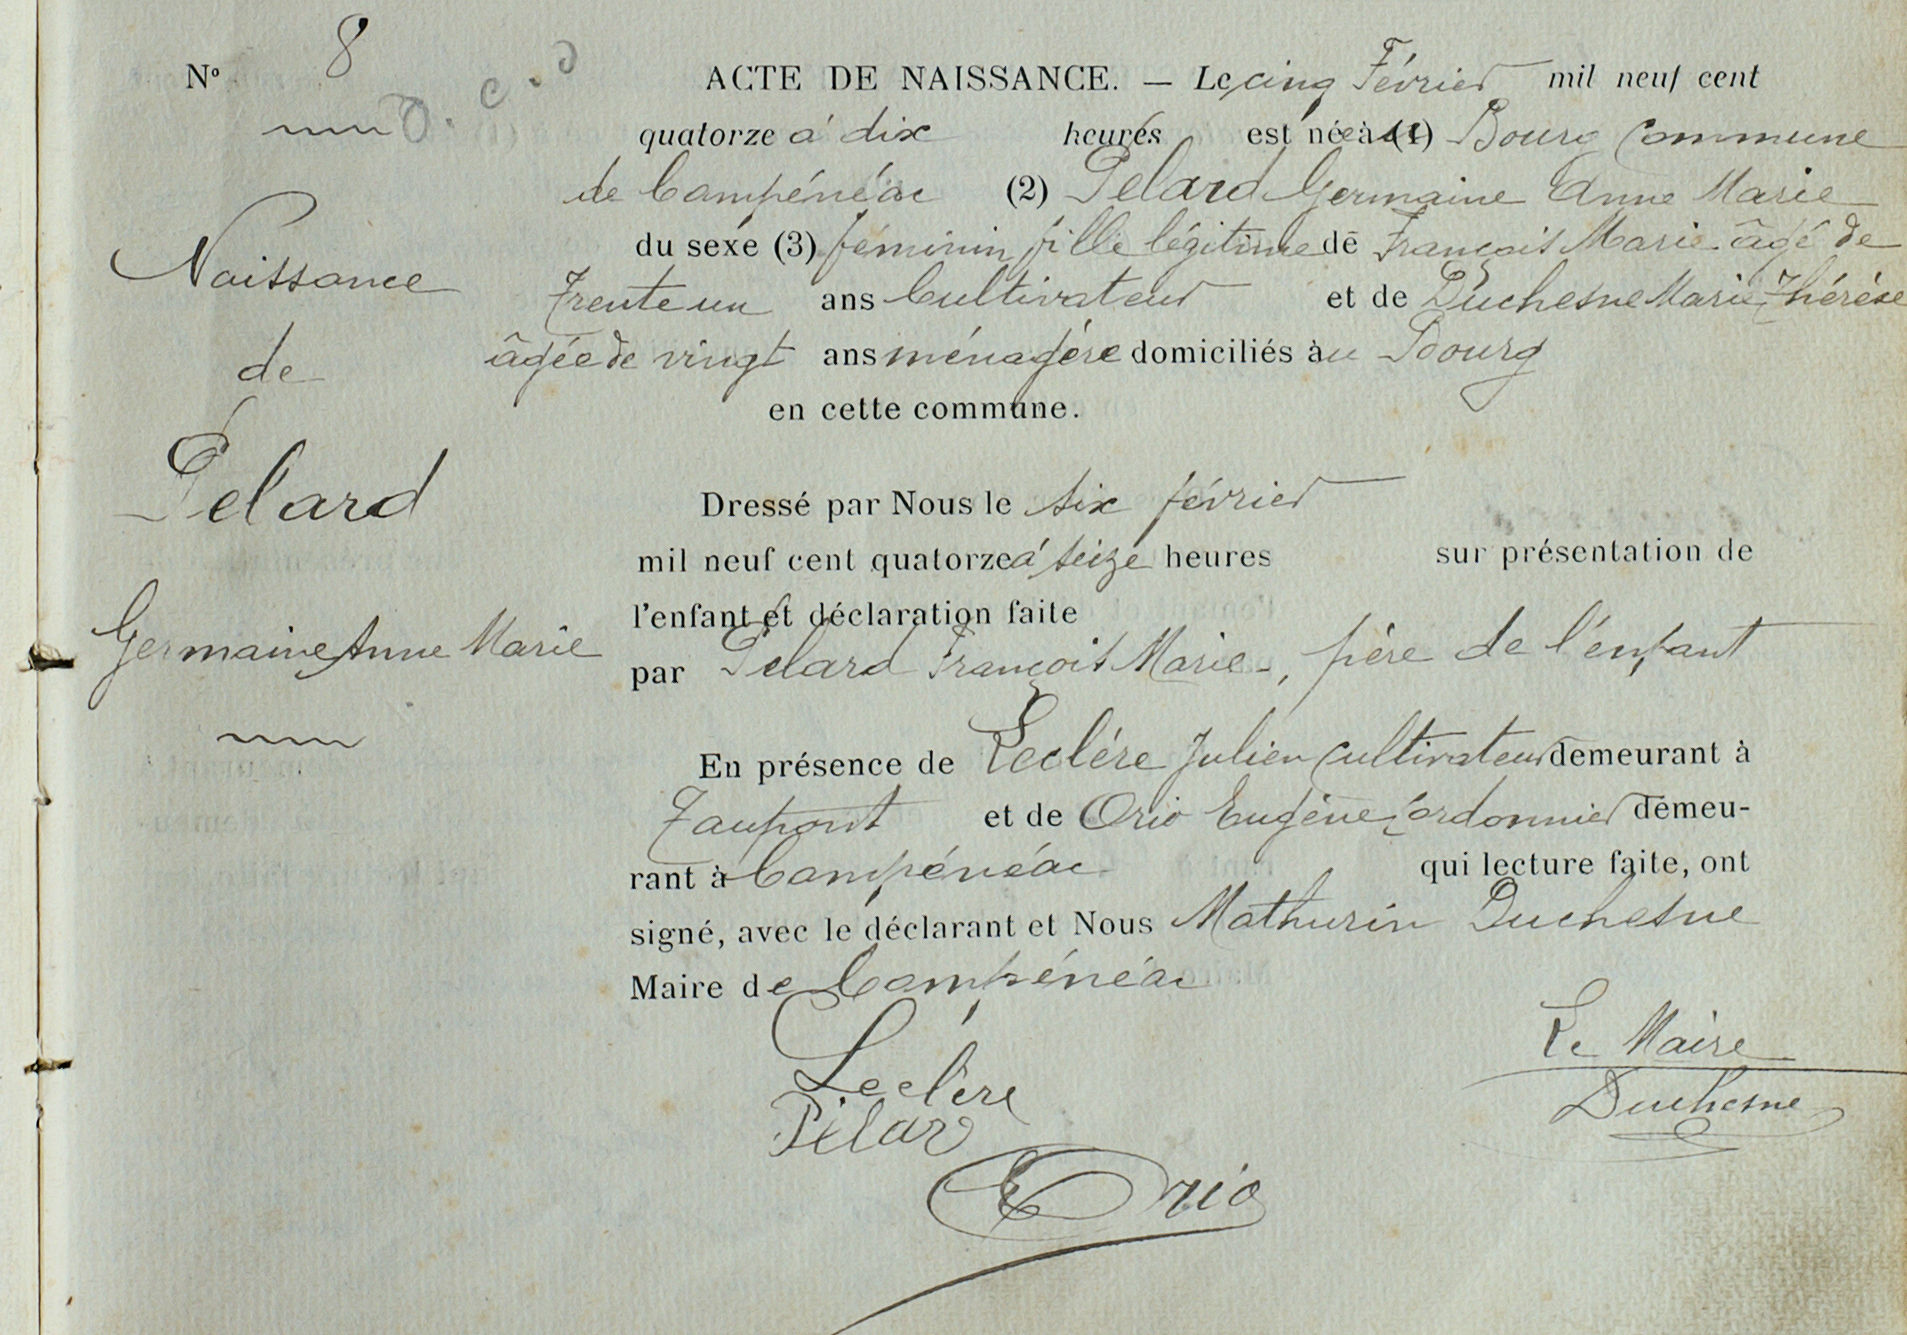 N° 8
ACTE DE NAISSANCE. — Le cinq Février mil neuf cent
quatorze à dix heures est née au (1) Bourg Commune
de Campénéac (2) Pelard Germaine Anne Marie
du sexe (3) féminin fille légitime de François Marie âgé de
Trente un ans Cultivateur et de Duchesne Marie Thérèse
âgée de vingt ans ménagère domiciliés au Bourg
en cette commune.
Naissance
de
Pelard
Germaine Anne Marie
Dressé par Nous le six février
mil neuf cent quatorze à seize heures sur présentation de
l'enfant et déclaration faite
par Pelard François Marie, père de l'enfant
En présence de Leclére Julien Cultivateur demeurant à
Taupont et de Orio Eugène Cordonnier demeu-
rant à Campénéac qui lecture faite, ont
signé, avec le déclarant et Nous Mathurin Duchesne
Maire de Campénéac
Leclére
Pelar
Orio
Le Maire
Duchesne